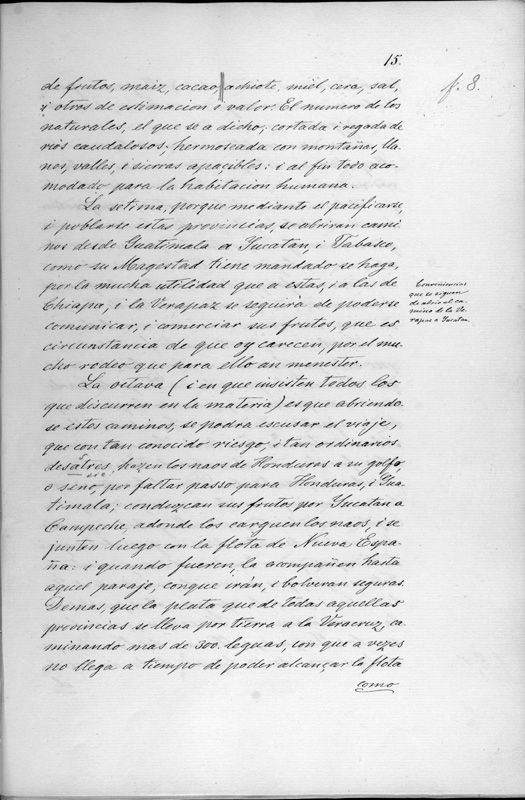 15.
f. 8.
de frutos, maiz, cacao, achiote, miel, cera, sal,
i otros de estimacion i valor. El numero de los
naturales, el que se a dicho; cortada i regada de
rios caudalosos, hermoseada con montañas, lla-
nos, valles, i sierras apacibles: i al fin todo aco-
modado para la habitacion humana.
La setima, porque mediante el pacificarse,
i poblarse estas provincias, se abriran cami
nos desde Guatimala a Yucatan, i Tabasco,
como su Magestad tiene mandado se haga,
por la mucha utilidad que a estas, i a las de
Chiapa, i la Verapaz se seguirà de poderse
comunicar, i comerciar sus frutos, que es
circunstancia de que oy carecen, por el mu-
cho rodeo que para ello an menester.
Conveniencias
que se siguen
de abrir el ca-
mino de la Ve-
rapaz a Yucatan.
La octava (i en que insisten todos los
que discurren en la materia) es que abriendo
se estos caminos, se podra escusar el viaje,
que con tan conocido riesgo, i tan ordinarios
desatres, hazen los naos de Honduras a su golfo,
sic
o seno, por faltar passo para Honduras, i Gua-
timala; conduzcan sus frutos por Yucatan a
Campeche, adonde los carguen los naos, i se
junten luego con la flota de Nueva Espa-
ña: i quando fueren, la acompañen hasta
aquel paraje, conque irán, i bolveran seguras.
Demas, que la plata que de todas aquellas
provincias se lleva por tierra a la Veracruz, ca-
minando mas de 300. leguas, con que a vezes
no llega a tiempo de poder alcançar la flota
como